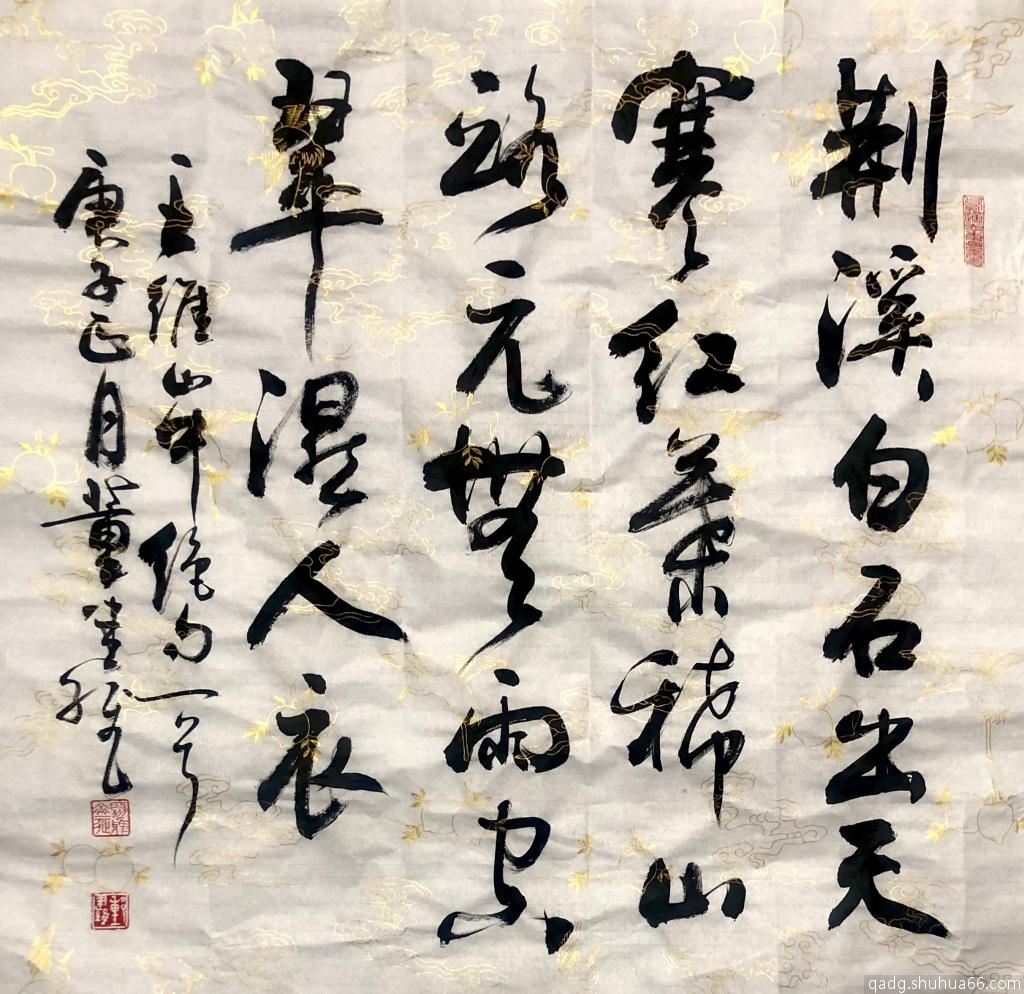 荆溪白石出天
寒红叶稀山
路元無雨空
翠湿人衣
王維山中绝句一首
庚子正月董
qadg.shuhua66.com